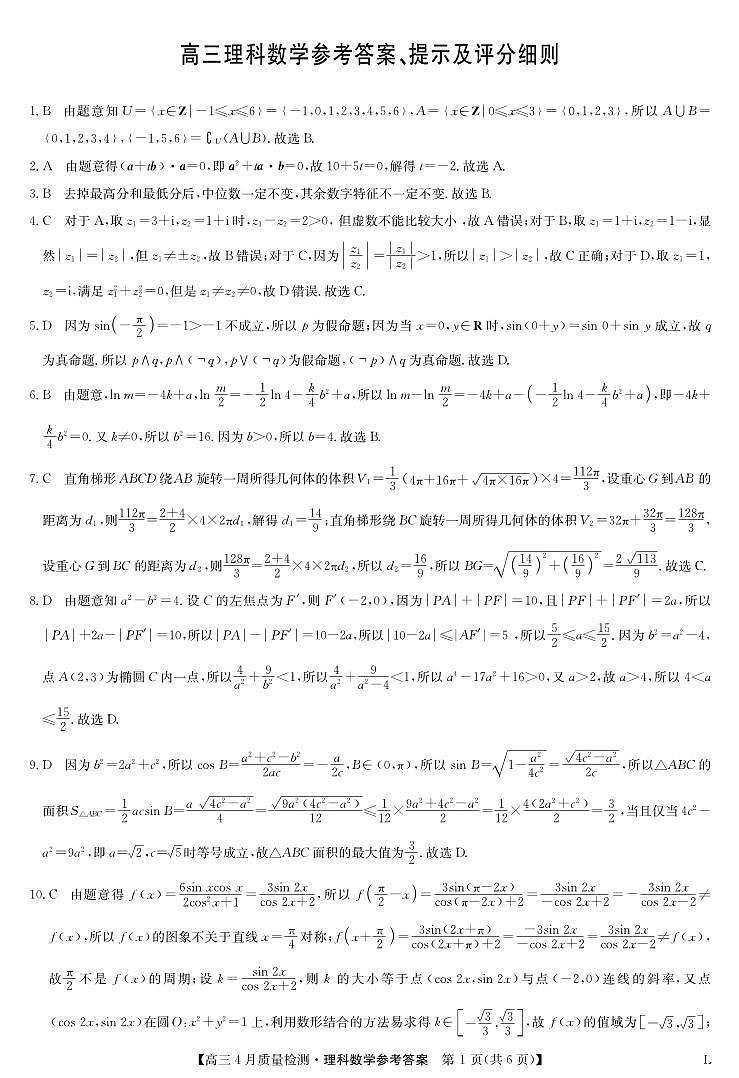 高三理科数学参考答案、提示及评分细则
1. B 由题意知 U={x∈Z|-1≤x≤6}={-1,0,1,2,3,4,5,6},A={x∈Z|0≤x≤3}={0,1,2,3},所以 A∪B=
{0,1,2,3,4},{-1,5,6}=∁U(A∪B). 故选 B.
2. A 由题意得(a+tb)·a=0,即 a²+ta·b=0,故 10+5t=0,解得 t=-2. 故选 A.
3. B 去掉最高分和最低分后,中位数一定不变,其余数字特征不一定不变. 故选 B.
4. C 对于 A,取 z₁=3+i,z₂=1+i 时,z₁-z₂=2>0, 但虚数不能比较大小 ,故 A 错误;对于 B,取 z₁=1+i,z₂=1-i,显
然|z₁|=|z₂|,但 z₁≠±z₂,故 B 错误;对于 C,因为|z₁/z₂|=|z₁|/|z₂|>1,所以|z₁|>|z₂|,故 C 正确;对于 D,取 z₁=1,
z₂=i,满足 z₁²+z₂²=0,但是 z₁≠z₂≠0,故 D 错误. 故选 C.
5. D 因为 sin(-π/2)=-1>-1 不成立,所以 p 为假命题;因为当 x=0,y∈R 时,sin(0+y)=sin 0+sin y 成立,故 q
为真命题. 所以 p∧q,p∧(¬q),p∨(¬q)为假命题,(¬p)∧q 为真命题. 故选 D.
6. B 由题意,ln m=-4k+a,ln m/2=-1/2 ln 4-k/4 b²+a,所以 ln m-ln m/2=-4k+a-(-1/2 ln 4-k/4 b²+a),即-4k+
k/4 b²=0. 又 k≠0,所以 b²=16. 因为 b>0,所以 b=4. 故选 B.
7. C 直角梯形 ABCD 绕 AB 旋转一周所得几何体的体积 V₁=1/3(4π+16π+√(4π×16π))×4=112π/3,设重心 G 到 AB 的
距离为 d₁,则112π/3=(2+4)/2×4×2πd₁,解得 d₁=14/9;直角梯形绕 BC 旋转一周所得几何体的体积 V₂=32π+32π/3=128π/3,
设重心 G 到 BC 的距离为 d₂,则128π/3=(2+4)/2×4×2πd₂,所以 d₂=16/9,所以 BG=√((14/9)²+(16/9)²)=2√113/9. 故选 C.
8. D 由题意知 a²-b²=4. 设 C 的左焦点为 F′,则 F′(-2,0),因为|PA|+|PF|=10,且|PF|+|PF′|=2a,所以
|PA|+2a-|PF′|=10,所以|PA|-|PF′|=10-2a,所以|10-2a|≤|AF′|=5 ,所以5/2≤a≤15/2. 因为 b²=a²-4,
点 A(2,3)为椭圆 C 内一点,所以4/a²+9/b²<1,所以4/a²+9/(a²-4)<1,所以 a⁴-17a²+16>0,又 a>2,故 a>4,所以 4<a
≤15/2. 故选 D.
9. D 因为 b²=2a²+c²,所以 cos B=(a²+c²-b²)/2ac=-a/2c,B∈(0,π),所以 sin B=√(1-a²/4c²)=√(4c²-a²)/2c,所以△ABC 的
面积 S△ABC=1/2 acsin B=a√(4c²-a²)/4=√(9a²(4c²-a²))/12≤1/12×(9a²+4c²-a²)/2=1/12×4(2a²+c²)/2=3/2,当且仅当 4c²-
a²=9a²,即 a=√2,c=√5时等号成立,故△ABC 面积的最大值为3/2. 故选 D.
10. C 由题意得 f(x)=6sin xcos x/(2cos²x+1)=3sin 2x/(cos 2x+2),所以 f(π/2-x)=3sin(π-2x)/(cos(π-2x)+2)=3sin 2x/(-cos 2x+2)=-3sin 2x/(cos 2x-2)≠
f(x),所以 f(x)的图象不关于直线 x=π/4 对称;f(x+π/2)=3sin(2x+π)/(cos(2x+π)+2)=-3sin 2x/(-cos 2x+2)=3sin 2x/(cos 2x-2)≠f(x),
故π/2 不是 f(x)的周期;设 k=sin 2x/(cos 2x+2),则 k 的大小等于点(cos 2x,sin 2x)与点(-2,0)连线的斜率,又点
(cos 2x,sin 2x)在圆 O:x²+y²=1 上,利用数形结合的方法易求得 k∈[-√3/3,√3/3],故 f(x)的值域为[-√3,√3];
【高三 4 月质量检测·理科数学参考答案 第 1 页(共 6 页)】 L